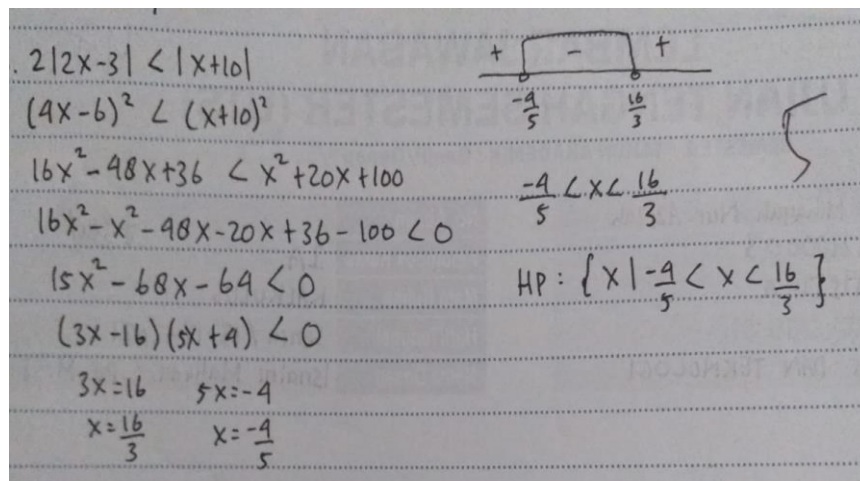 2|2x-3| < |x+10|
(4x-6)² < (x+10)²
16x²-48x+36 < x²+20x+100
16x²-x²-48x-20x+36-100<0
15x²-68x-64<0
(3x-16)(5x+4)<0
3x=16 5x=-4
x=16/3 x=-4/5
+ +
-4/5 16/3
-4/5 <x< 16/3
HP : {x|-4/5 < x < 16/3}